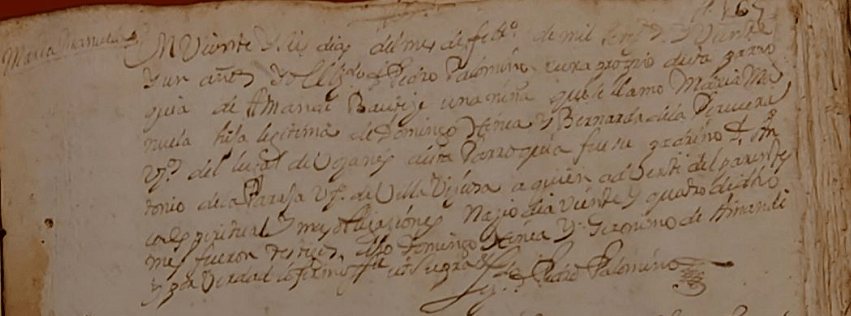 167
Maria Manuela
En Viente y seis dias del mes de febro. de mil setes. y Viente
y un años yo el Lizdo. D. Pedro Palomino cura proprio desta parro
quia de Amandi Bautize una niña que se llamo Maria Ma
nuela hija legitima de Domingo y Bernarda de la
vºs. del lugar de desta Parroquia fue su padrino D. An
tonio de la Paraja vº. de Villa Viziosa a quien adverti del parentes
co espiritual y mas obligaciones Nazio dia viente y quatro de dho
mes fueron testigos dho Domingo y Geronimo de Amandi
y por Verdad lo firmo fha ut supra
Liz. D. Pedro Palomino